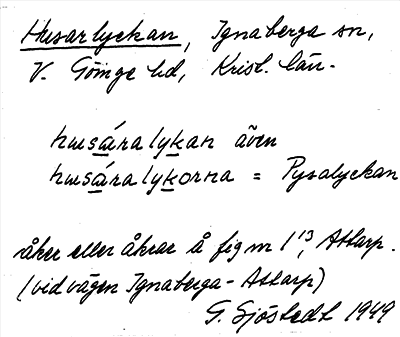 Husarlyckan, Ignaberga sn,
V. Göinge hd, Krist. län.
husáralykan även
husáralykorna = Pysalyckan
åker eller åkrar å fig m 1¹³, Attarp.
(vid vägen Ignaberga-Attarp)
G. Sjöstedt 1949